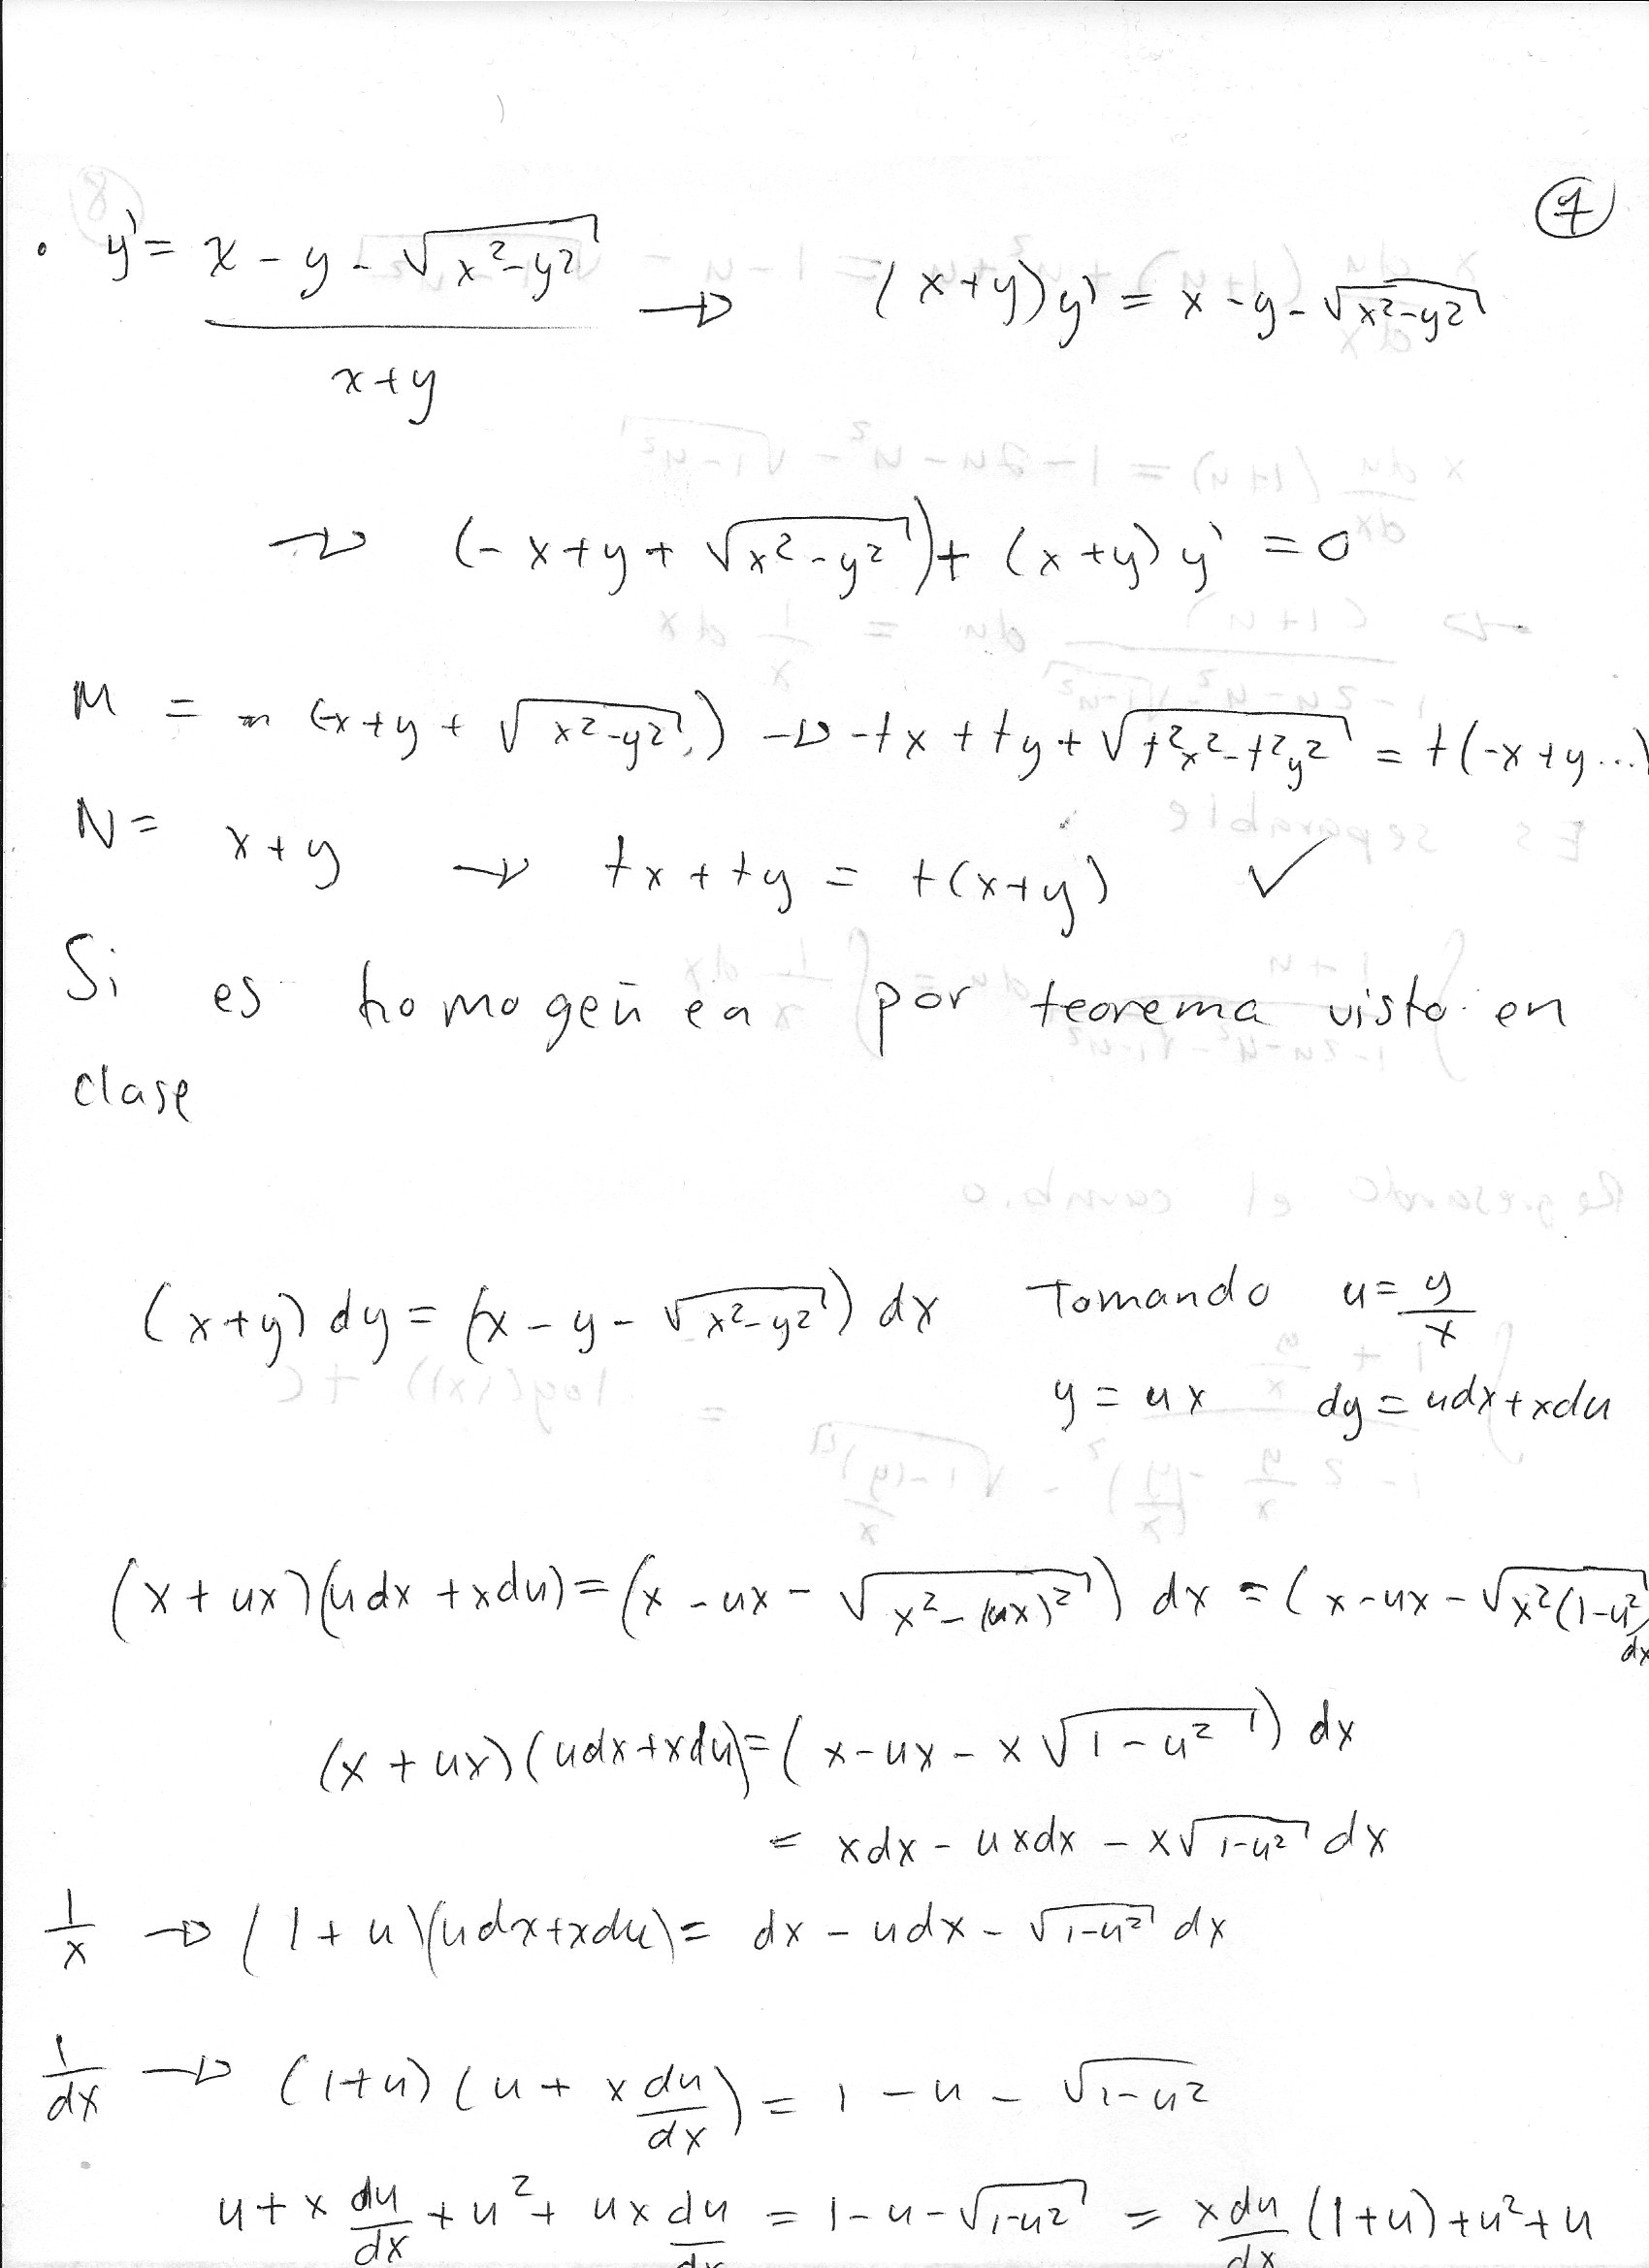 7
• y' = (x - y - √(x²-y²)) / (x+y) → (x+y)y' = x - y - √(x²-y²)
→ (-x+y+√(x²-y²)) + (x+y)y' = 0
M = (-x+y+√(x²-y²)) → -tx+ty+√(t²x²-t²y²) = t(-x+y...)
N = x+y → tx+ty = t(x+y) ✓
Si es homogenea por teorema visto en
clase
(x+y)dy = (x-y-√(x²-y²))dx Tomando u = y/x
y = ux dy = udx+xdu
(x+ux)(udx+xdu) = (x-ux-√(x²-(ux)²)) dx = (x-ux-√(x²(1-u²) dx
(x+ux)(udx+xdu) = (x-ux-x√(1-u²)) dx
= xdx - uxdx - x√(1-u²) dx
1/x → (1+u)(udx+xdu) = dx - udx - √(1-u²) dx
1/dx → (1+u)(u + x du/dx) = 1 - u - √(1-u²)
u + x du/dx + u² + ux du/dx = 1-u-√(1-u²) = x du/dx (1+u) + u² + u